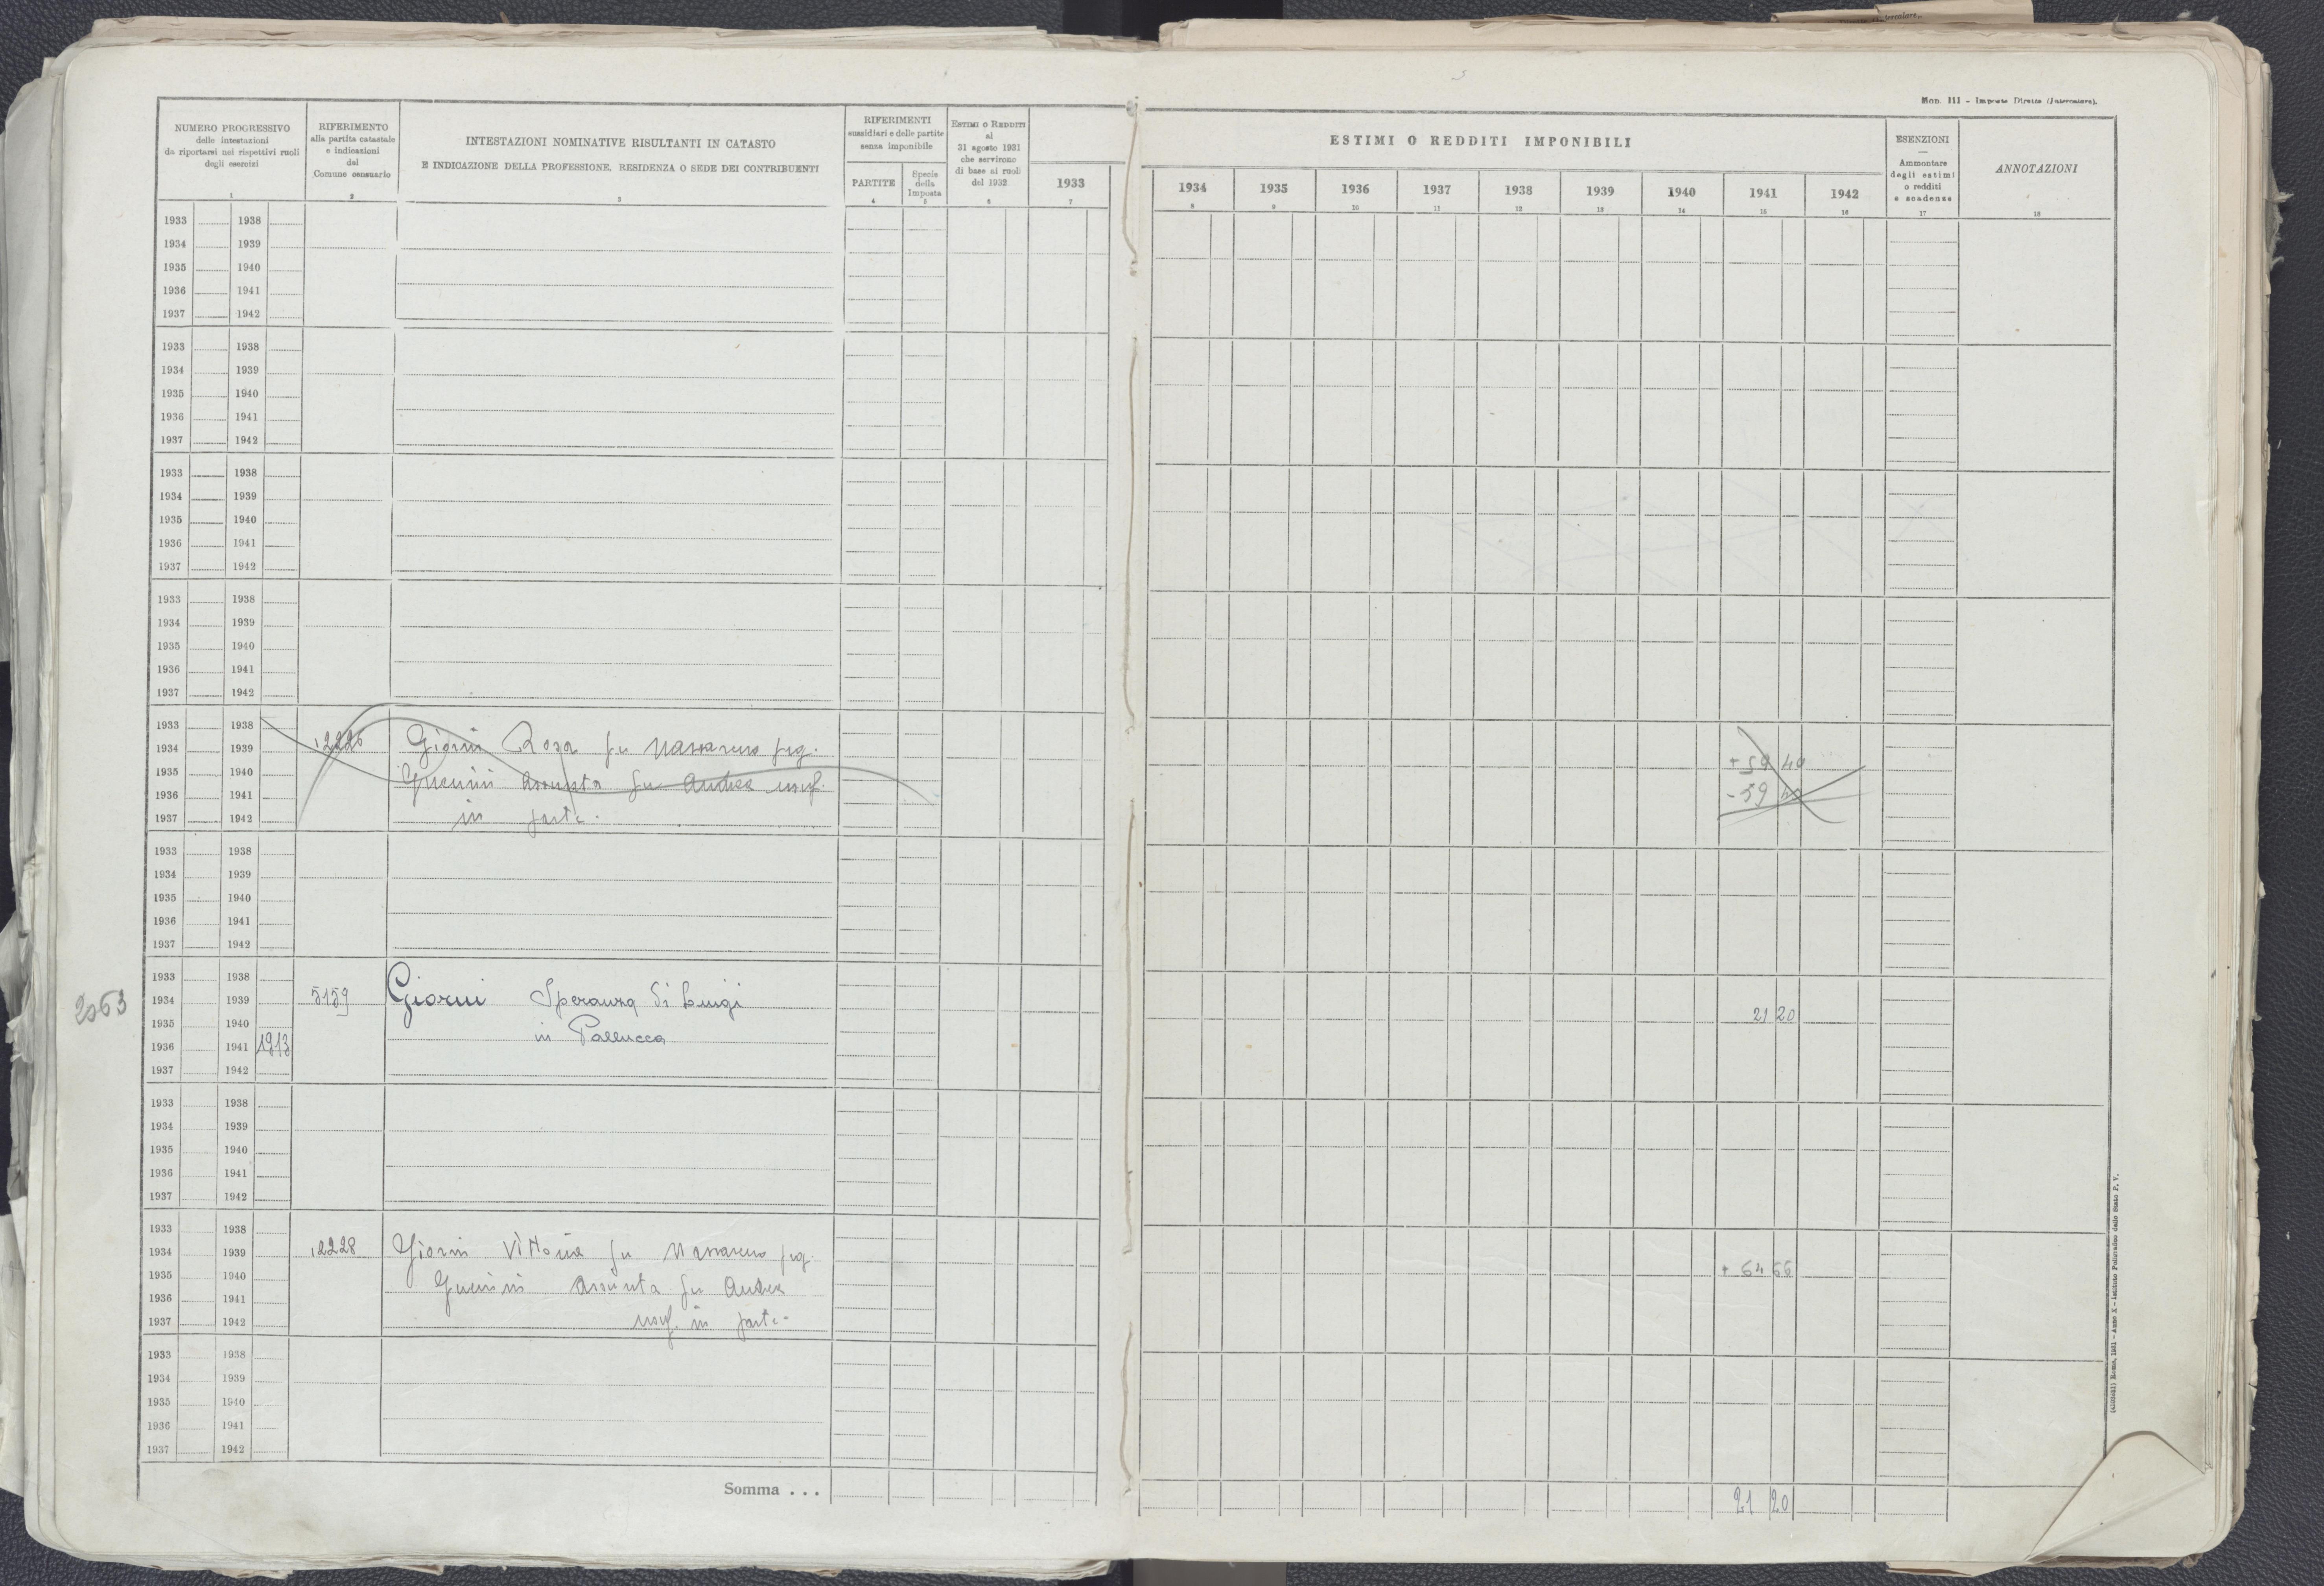 Mod. 111 - Imposte Dirette (Intercalare).
NUMERO PROGRESSIVO
delle intestazioni
da riportarsi nei rispettivi ruoli
degli esercizi
1
RIFERIMENTO
alla partita catastale
e indicazioni
del
Comune censuario
2
INTESTAZIONI NOMINATIVE RISULTANTI IN CATASTO
E INDICAZIONE DELLA PROFESSIONE, RESIDENZA O SEDE DEI CONTRIBUENTI
3
RIFERIMENTI
sussidiari e delle partite
senza imponibile
PARTITE
4
Specie
della
Imposta
5
ESTIMI O REDDITI
al
31 agosto 1931
che servirono
di base ai ruoli
del 1932
6
1933
7
ESTIMI O REDDITI IMPONIBILI
1934 1935 1936 1937 1938 1939 1940 1941 1942
8 9 10 11 12 13 14 15 16
ESENZIONI
—
Ammontare
degli estimi
o redditi
e scadenze
17
ANNOTAZIONI
18
1933 1938
1934 1939
1935 1940
1936 1941
1937 1942
1933 1938
1934 1939
1935 1940
1936 1941
1937 1942
1933 1938
1934 1939
1935 1940
1936 1941
1937 1942
1933 1938
1934 1939
1935 1940
1936 1941
1937 1942
1933 1938
1934 1939 12226 Giorni Rosa fu Nazzareno prg. + 59 40
1935 1940 Guerrini Assunta fu Andrea usuf. - 59 40
1936 1941 in parte.
1937 1942
1933 1938
1934 1939
1935 1940
1936 1941
1937 1942
1933 1938
2063 1934 1939 5159 Giorni Speranza di Luigi 21 20
1935 1940 in Pallucca
1936 1941 1913
1937 1942
1933 1938
1934 1939
1935 1940
1936 1941
1937 1942
1933 1938
1934 1939 12228 Giorni Vittoria fu Nazzareno prg. + 64 66
1935 1940 Guerrini Assunta fu Andrea
1936 1941 usuf. in parte-
1937 1942
1933 1938
1934 1939
1935 1940
1936 1941
1937 1942
Somma . . . 21 20
Roma, 1931 - Anno X - Istituto Poligrafico dello Stato P. V.